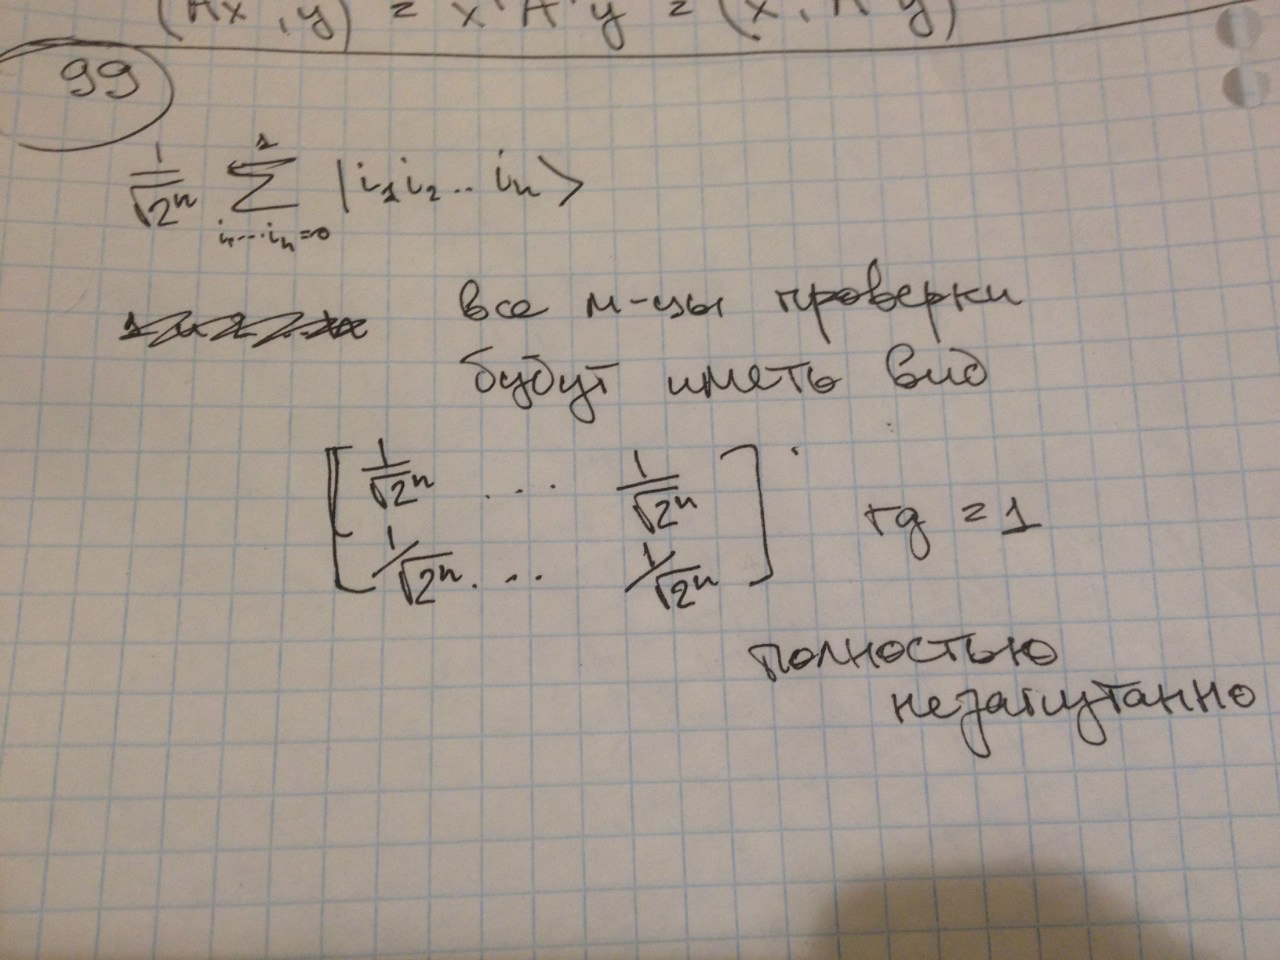 (Ax, y) = xᵀAᵀy = (x, Aᵀy)
99
1/√2ⁿ ∑ |i₁i₂...iₙ>
1
i₁...iₙ=0
все м-цы проверки
будут иметь вид
[1/√2ⁿ ... 1/√2ⁿ]
[1/√2ⁿ ... 1/√2ⁿ]
rg = 1
полностью
незапутанно